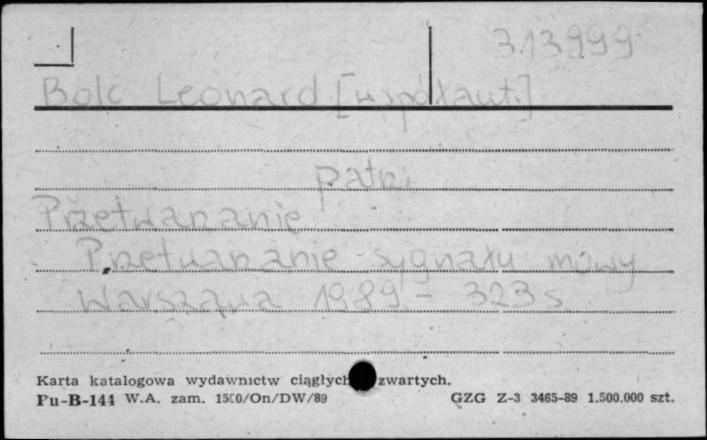 313999
Bolc Leonard [współaut.]
patrz
Przetwarzanie
Przetwarzanie sygnału mowy
Warszawa 1989.- 323 s
Karta katalogowa wydawnictw ciągłych zwartych.
Pu-B-144 W.A. zam. 1500/On/DW/89 GZG Z-3 3465-89 1.500.000 szt.